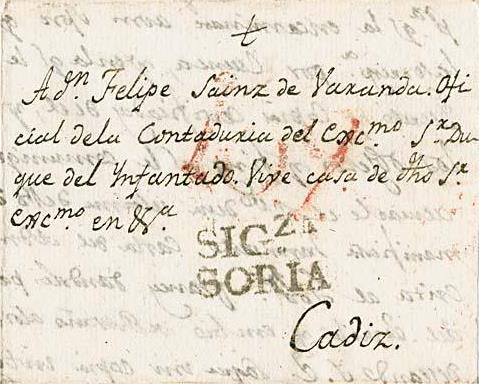 A dn. Felipe Sainz de Varanda. Ofi
cial dela Contaduria del Excmo Sr. Du
que del Ynfantado. Vive casa de dho Sr.
Excmo. en
SIG.za
SORIA
Cadiz.